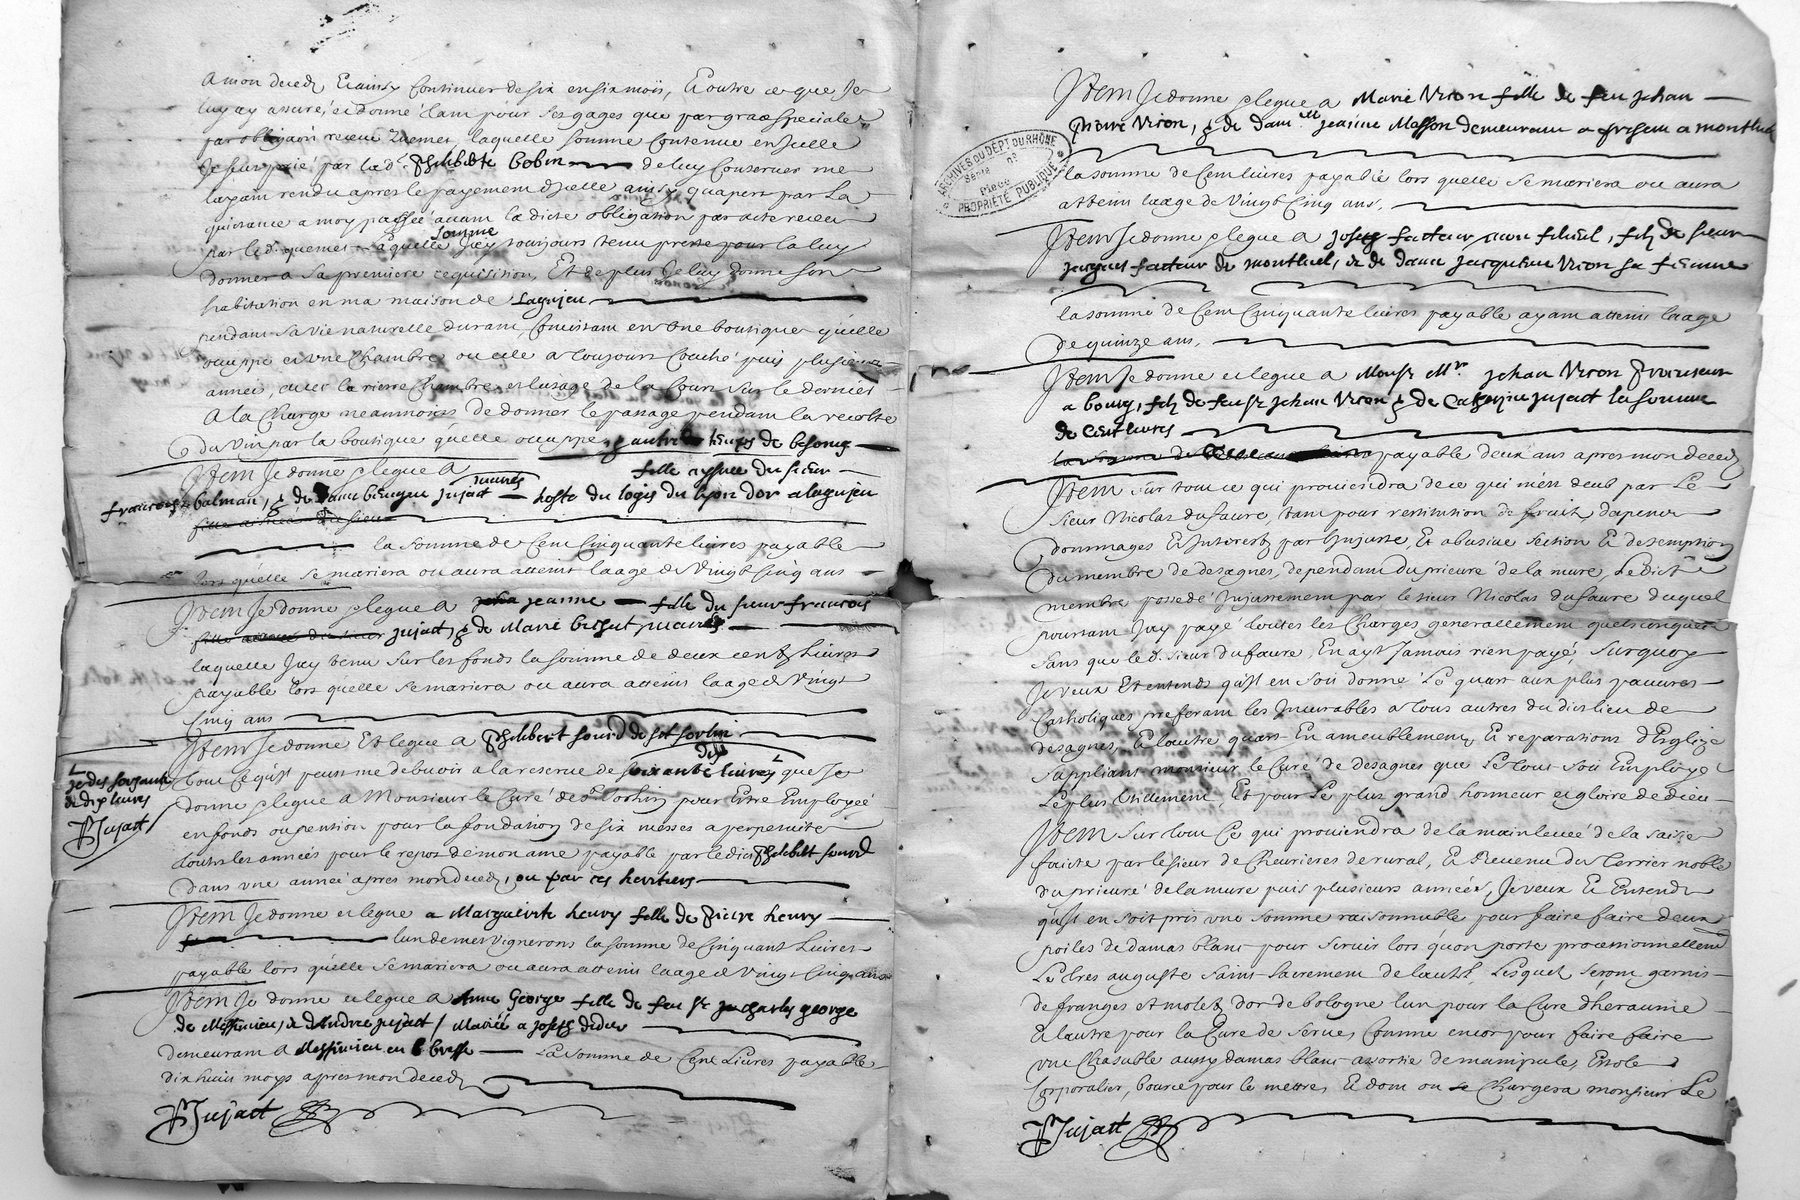 A mon deced, Et ainsy Continuer de six en six mois, Et outre ce que Je
luy ay assuré, et donné tant pour ses gages que par grace speciale
par obligaōn receue laquelle somme contenue en Icelle
par lad. Philiberte bobin de luy Conserver me
layant rendu apres le payement d'Icelle ainsy quapert par La
quittance a moy passée avant la dicte obligation par acte receu
par led. quemet laquelle somme Jay tousjours tenu preste pour la luy
donner a sa premiere requisition, Et de plus Je luy donne son
habitation en ma maison de Lagnieu
pendant sa vie naturelle durant, Consistant en Une boutique qu'elle
occuppe et vne Chambre ou elle a tousjours Couché puis plusieurs
années, avec la Chambre et lusage de la Cour sur le dernier
A la Charge neantmoins de donner le passage pendant la recolte
Du Vin par la boutique qu'elle occuppe, & autre temps de besoing
Item Je donne & legue A fille aysnee du sieur
francois balman, & de dame benoyte Jujatt mariés hoste du logis du lyon dor a lagnieu
la somme de Cent Cinquante livres payable
lors qu'elle se mariera ou aura atteint laage de Vingt Cinq ans
Item Je donne & legue a Jeanne fille du sieur francois
Jujatt, & de Marie mariés
laquelle Jay tenu sur les fonds la somme de deux cents Livres
payable lors qu'elle se mariera ou aura atteint laage de Vingt
Cinq ans
Item Je donne Et legue A Philibert sourd de st sorlin
tout ce qu'il peut me debvoir a la reserve de soixante dix livres que Je
Je dis soixante
et dix livres
PJujatt
donne & legue a Monsieur le Curé de St Sorlin pour Estre Employéé
en fonds ou pention pour la fondation de six messes a perpetuité
toutes les années pour le repos de mon ame payable par ledict Philibert sourd
dans vne année apres mon deced, ou par ces heritiers
Item Je donne et legue a Marguerite henry fille de Pierre henry
lun de mes vignerons la somme de Cinquant Livres
payable lors qu'elle se mariera ou aura atteint laage de Vingt Cinq ans
Item Je donne et legue A Anne George fille de feu Sr Charles george
de Messimieu, & d'Andree Jujatt / Mariée a Joseph didier
demeurant A Messimieu en Bresse La somme de Cent Livres payable
dix huit moys apres mon deced
PJujatt
Item Je donne & legue A Marie Vron fille de feu Jehan
Pierre Vron, & de damlle Jeanne Masson demeurant a present a montluel
la somme de Cent livres payable lors quelle se mariera ou aura
atteint laage de Vingt Cinq ans,
Item Je donne & legue A Joseph facteur mon filieul, fils de sieur
Jacques facteur de montluel, & de dame Jacqueline Vron sa femme
la somme de Cent Cinquante livres payable ayant atteint laage
de quinze ans,
Item Je donne et legue A Monsr Mre Jehan Vron Procureur
a bourg, fils de feu sr Jehan Vron & de Catherine Jujatt la somme
de Cent livres
payable deux ans apres mon deced
Item sur tout ce qui proviendra de ce qui m'en deub par Le
sieur Nicolas dufaure, tant pour restitution de fruit, despens
dommages Et Interest par Injuste, Et abusive section Et desemption
du membre de desagnes, dependant du prieuré de la mure, Ledict
membre possedé Injustement par le sieur Nicolas dufaure duquel
pourtant Jay payé toutes les Charges generallement quelconques
sans que led. sieur dufaure, En ayt Jamais rien payé, Surquoy
Je veux Et entends qu'il en soit donné Le quart aux plus pauvres
Catholiques preferant les Incurables a tous autres du dict lieu de
desagnes, Et lautre quart En ameublement, Et reparations d'Esglize
suppliant monsieur le Curé de desagnes que Le tout soit Employé
Le plus Utillement, Et pour Le plus grand honneur et gloire de dieu
Item sur tout Ce qui proviendra de la main levée de la saisie
faicte par le sieur de Chevrieres de rural, Et Revenu du terrier noble
du prieuré de la mure puis plusieurs années, Je veux Et Entends
qu'il en soit pris vne somme raisonnable pour faire faire deux
poiles de damas blanc pour servir lors qu'on porte processionnellement
Le tres auguste saint Sacrement de lautel, Lesquels seront garnis
de franges Et molets d'or de bologne lun pour la Cure d'heraume
Et lautre pour la Cure de serve, Comme encor pour faire faire
vne Chasuble aussy damas blanc assortie de manipule, Estole
Corporalier, bource pour le mettre, Et dont ou se Chargera monsieur Le
PJujatt
ARCHIVES DU DÉPT DU RHÔNE
Série nº
Pièce
PROPRIÉTÉ PUBLIQUE